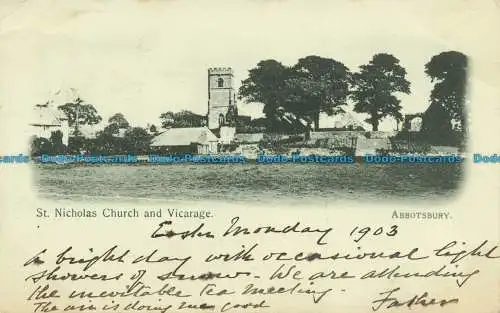 Bodo-Postcards Bodo-Postcards Bodo-Postcards Bodo-Postcards Bodo-Postcards
St. Nicholas Church and Vicarage. ABBOTSBURY.
Easter Monday 1903
A bright day with occasional light
showers of snow. We are attending
the inevitable tea meeting.
The air is doing me good Father